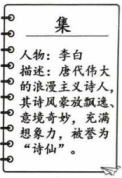 集
人物：李白
描述：唐代伟大
的浪漫主义诗人，
其诗风豪放飘逸、
意境奇妙，充满
想象力，被誉为
“诗仙”。